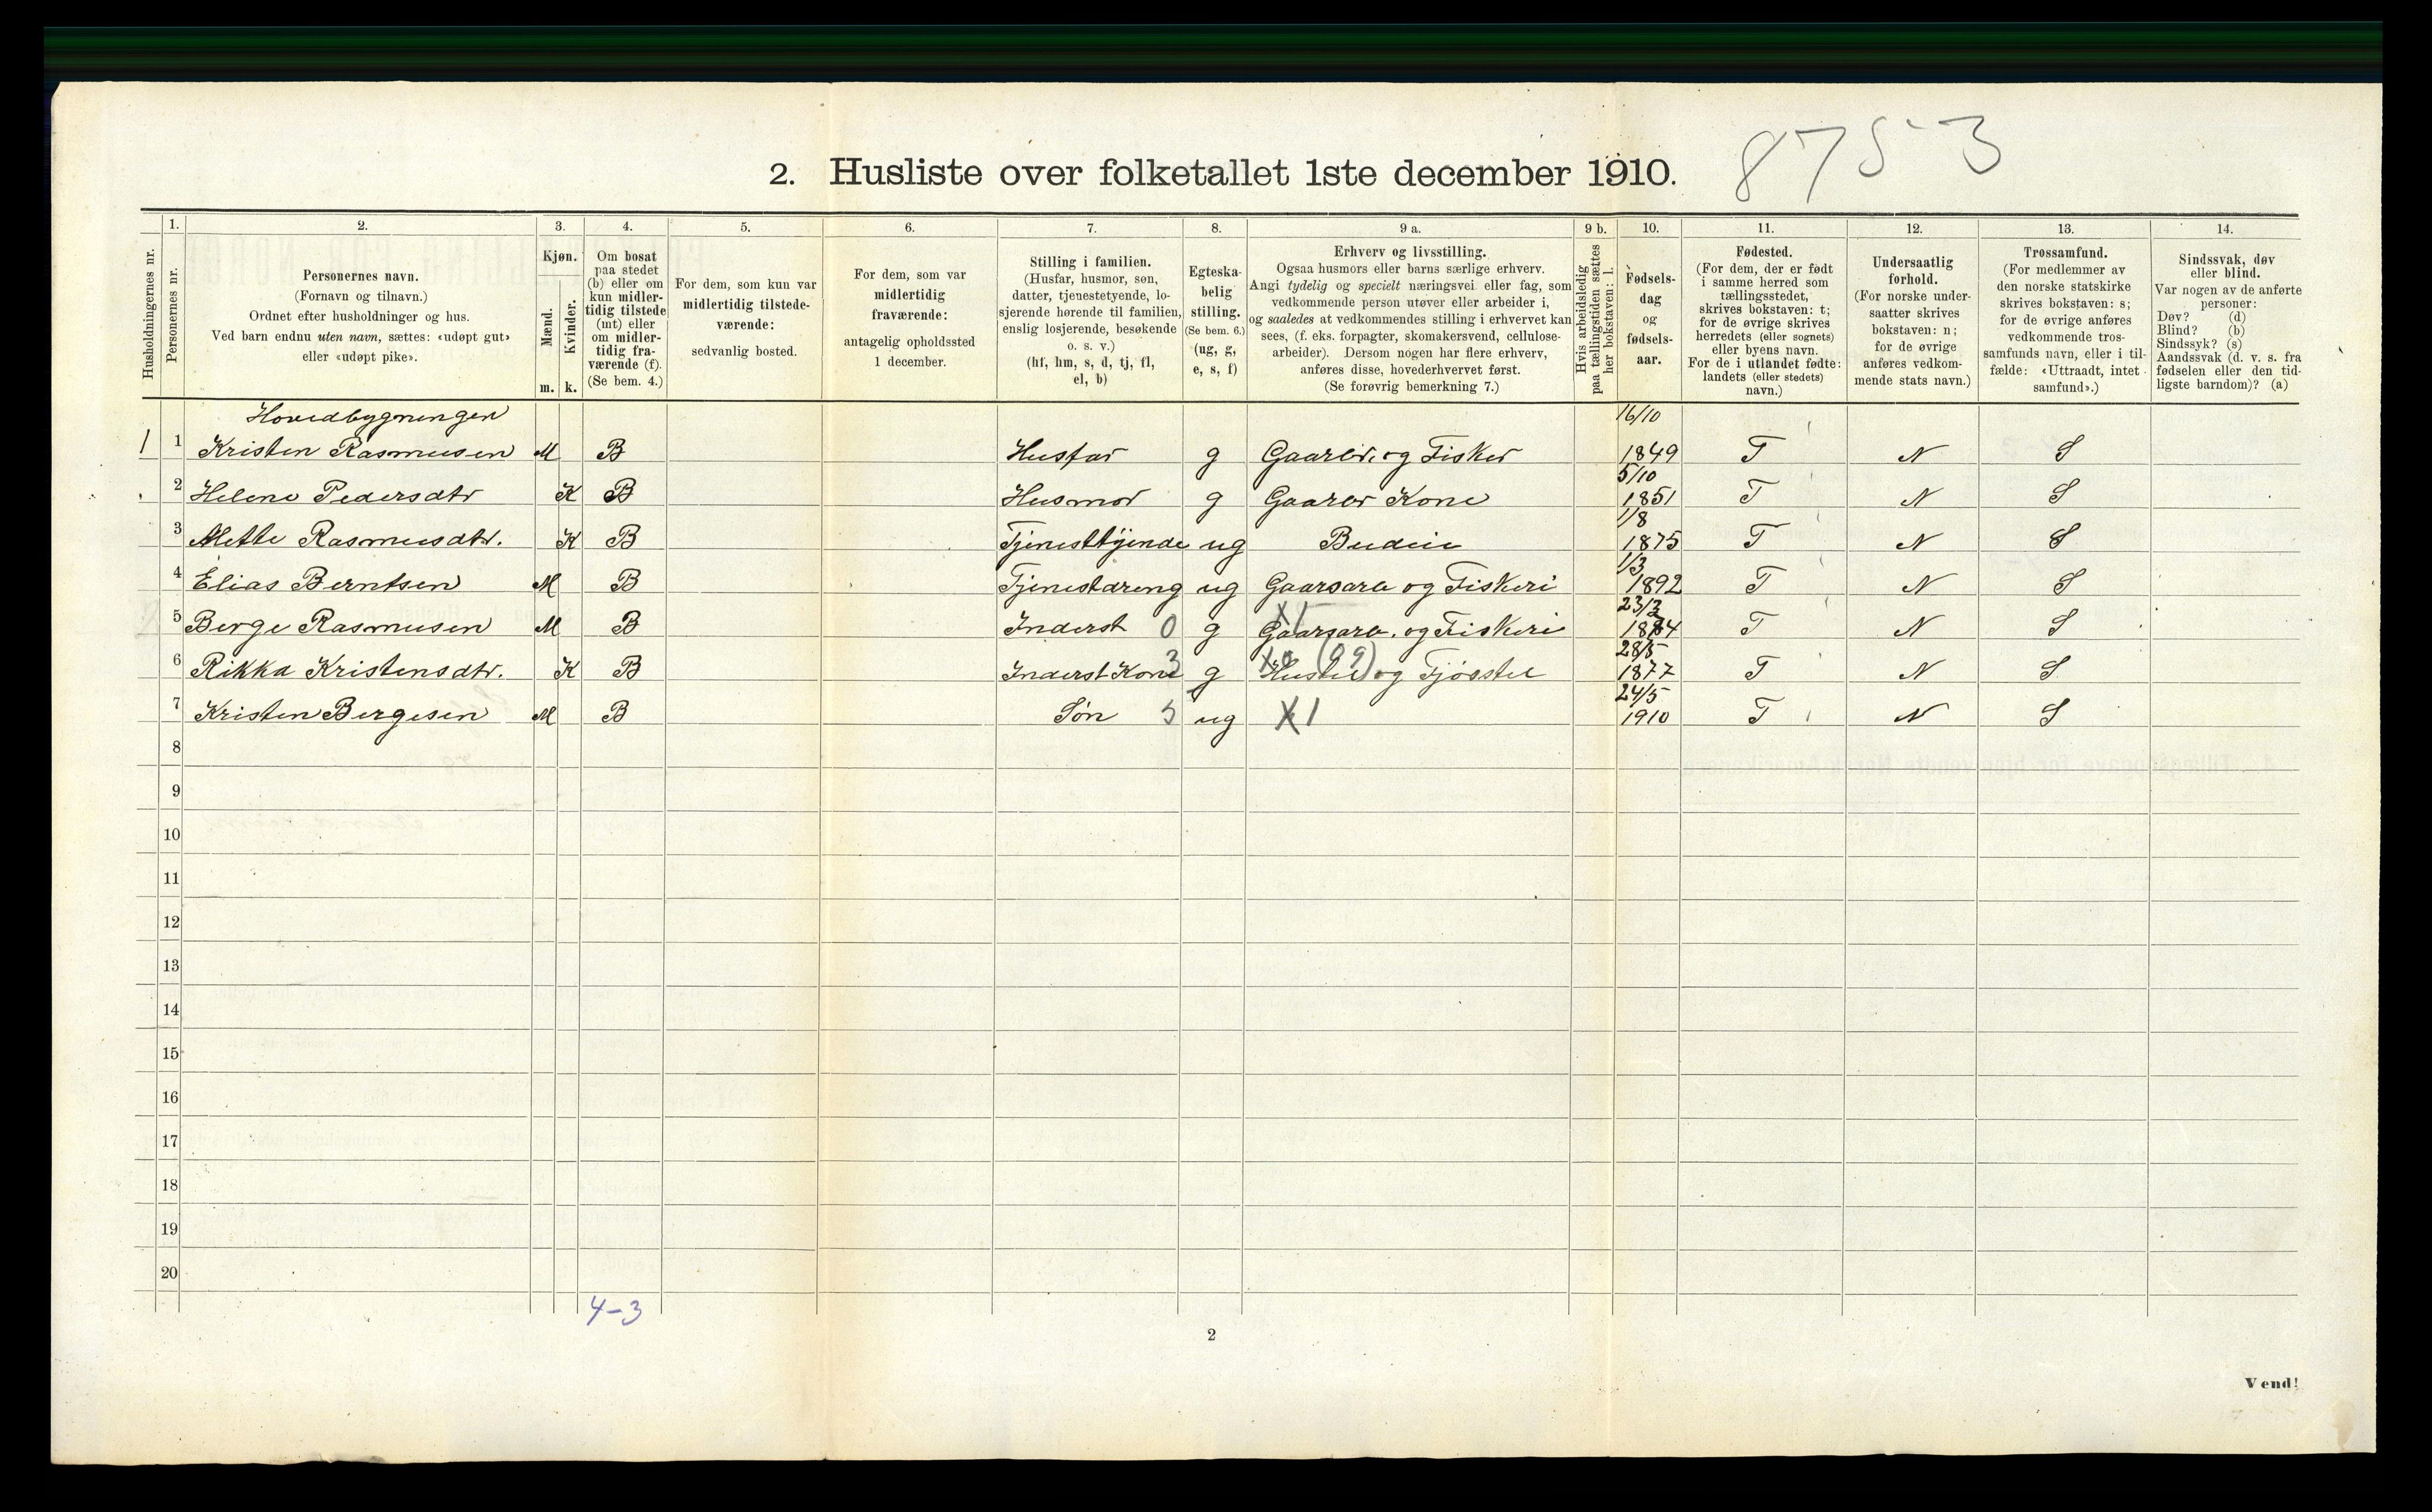 8753
2. Husliste over folketallet 1ste december 1910.
Husholdningernes nr.
1. Personernes nr.
2. Personernes navn.
(Fornavn og tilnavn.)
Ordnet efter husholdninger og hus.
Ved barn endnu uten navn, sættes: «udøpt gut»
eller «udøpt pike».
3. Kjøn.
Mænd. Kvinder.
m. k.
4. Om bosat
paa stedet
(b) eller om
kun midler-
tidig tilstede
(mt) eller
om midler-
tidig fra-
værende (f).
(Se bem. 4.)
5. For dem, som kun var
midlertidig tilstede-
værende:
sedvanlig bosted.
6. For dem, som var
midlertidig
fraværende:
antagelig opholdssted
1 december.
7. Stilling i familien.
(Husfar, husmor, søn,
datter, tjenestetyende, lo-
sjerende hørende til familien,
enslig losjerende, besøkende
o. s. v.)
(hf, hm, s, d, tj, fl,
el, b)
8. Egteska-
belig
stilling.
(Se bem. 6.)
(ug, g,
e, s, f)
9 a. Erhverv og livsstilling.
Ogsaa husmors eller barns særlige erhverv.
Angi tydelig og specielt næringsvei eller fag, som
vedkommende person utøver eller arbeider i,
og saaledes at vedkommendes stilling i erhvervet kan
sees, (f. eks. forpagter, skomakersvend, cellulose-
arbeider). Dersom nogen har flere erhverv,
anføres disse, hovederhvervet først.
(Se forøvrig bemerkning 7.)
9 b. Hvis arbeidsledig
paa tællingstiden sættes
her bokstaven: l.
10. Fødsels-
dag
og
fødsels-
aar.
11. Fødested.
(For dem, der er født
i samme herred som
tællingsstedet,
skrives bokstaven: t;
for de øvrige skrives
herredets (eller sognets)
eller byens navn.
For de i utlandet fødte:
landets (eller stedets)
navn.)
12. Undersaatlig
forhold.
(For norske under-
saatter skrives
bokstaven: n;
for de øvrige
anføres vedkom-
mende stats navn.)
13. Trossamfund.
(For medlemmer av
den norske statskirke
skrives bokstaven: s;
for de øvrige anføres
vedkommende tros-
samfunds navn, eller i til-
fælde: «Uttraadt, intet
samfund».)
14. Sindssvak, døv
eller blind.
Var nogen av de anførte
personer:
Døv? (d)
Blind? (b)
Sindssyk? (s)
Aandssvak (d. v. s. fra
fødselen eller den tid-
ligste barndom)? (a)
Hovedbygningen
1 1 Kristen Rasmusen M B Husfar g Gaarbr. og Fisker 16/10 1849 T N S
2 Helene Pedersdtr K B Husmor g Gaarbr Kone 5/10 1851 T N S
3 Mette Rasmusdtr. K B Tjenesttyende ug Budeie 1/8 1875 T N S
4 Elias Berntsen M B Tjenestdreng ug Gaarsarb og Fiskeri 1/3 1892 T N S
5 Berge Rasmusen M B Inderst 0 g X1 Gaarsarb. og Fiskeri 1884 T N S
6 Rikka Kristensdtr. K B Inderst Kone 3 g (09) Hustel og Fjøsstel 28/5 1877 T N S
7 Kristen Bergesen M B Søn 5 ug X1 24/5 1910 T N S
8
9
10
11
12
13
14
15
16
17
18
19
20
4-3
2
Vend!